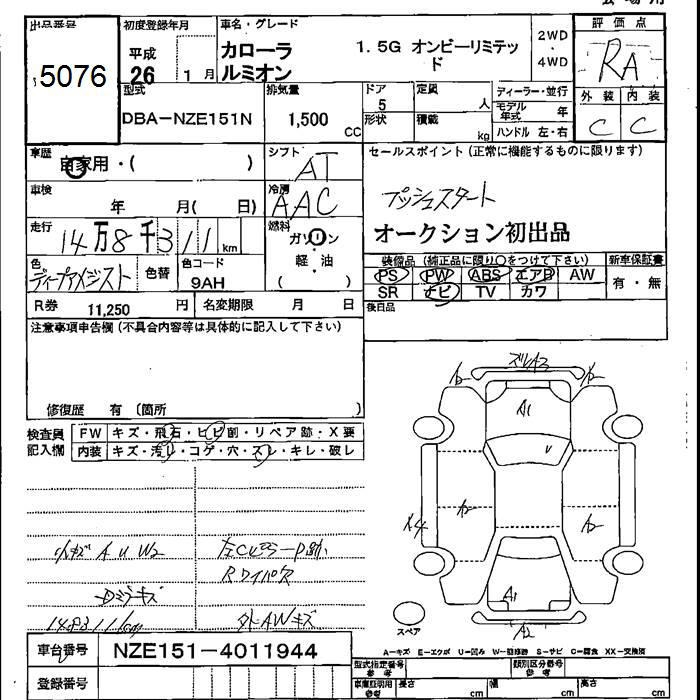 出品番号
5076
初度登録年月
平成
26
1 月
車名・グレード
カローラ
ルミオン
1.5G オンビーリミテッ
ド
2WD
・
4WD
評価点
RA
外装 内装
C C
型式
DBA-NZE151N
排気量
1,500
CC
ドア
5
定員
人
形状
積載
kg
ディーラー・並行
モデル
年式
年
ハンドル 左・右
車歴
自家用・( )
シフト
AT
車検
年 月( 日)
冷房
AAC
走行
14万8千311km
燃料
ガソリン
軽・油
( )
色
ディープアメジスト
色替
色コード
9AH
R券
11,250 円
名変期限 月 日
セールスポイント(正常に機能するものに限ります)
プッシュスタート
オークション初出品
装備品(純正品に限り○をつけて下さい) 新車保証書
PS PW ABS エアB AW
有・無
SR ナビ TV カワ
後日品
注意事項申告欄(不具合内容等は具体的に記入して下さい)
修復歴 有(箇所 )
検査員
記入欄
FW キズ・飛石・ヒビ割・リペア跡・X要
内装 キズ・汚れ・コゲ・穴・スレ・キレ・破レ
小キズ A U W2
Rワイパー欠
148311km
外AWキズ
A2
A1
U
A1
A2
スペア
A-キズ E-エクボ U-凹み W-補修跡 S-サビ C-腐食 XX-交換済
車台番号
NZE151-4011944
登録番号
型式指定番号
参考
類別区分番号
参考
車庫証明用
参考
長さ cm
幅 cm
高さ cm